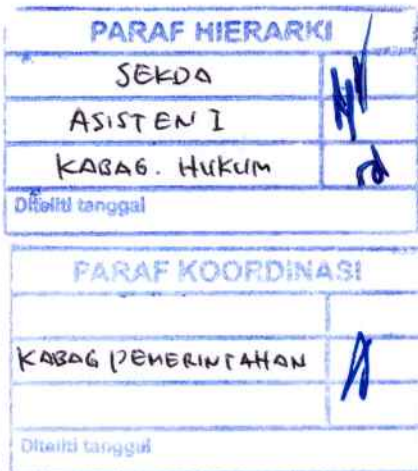 PARAF HIERARKI
SEKDA
ASISTEN I
KABAG. HUKUM
Diteliti tanggal
PARAF KOORDINASI
KABAG PEMERINTAHAN
Diteliti tanggal